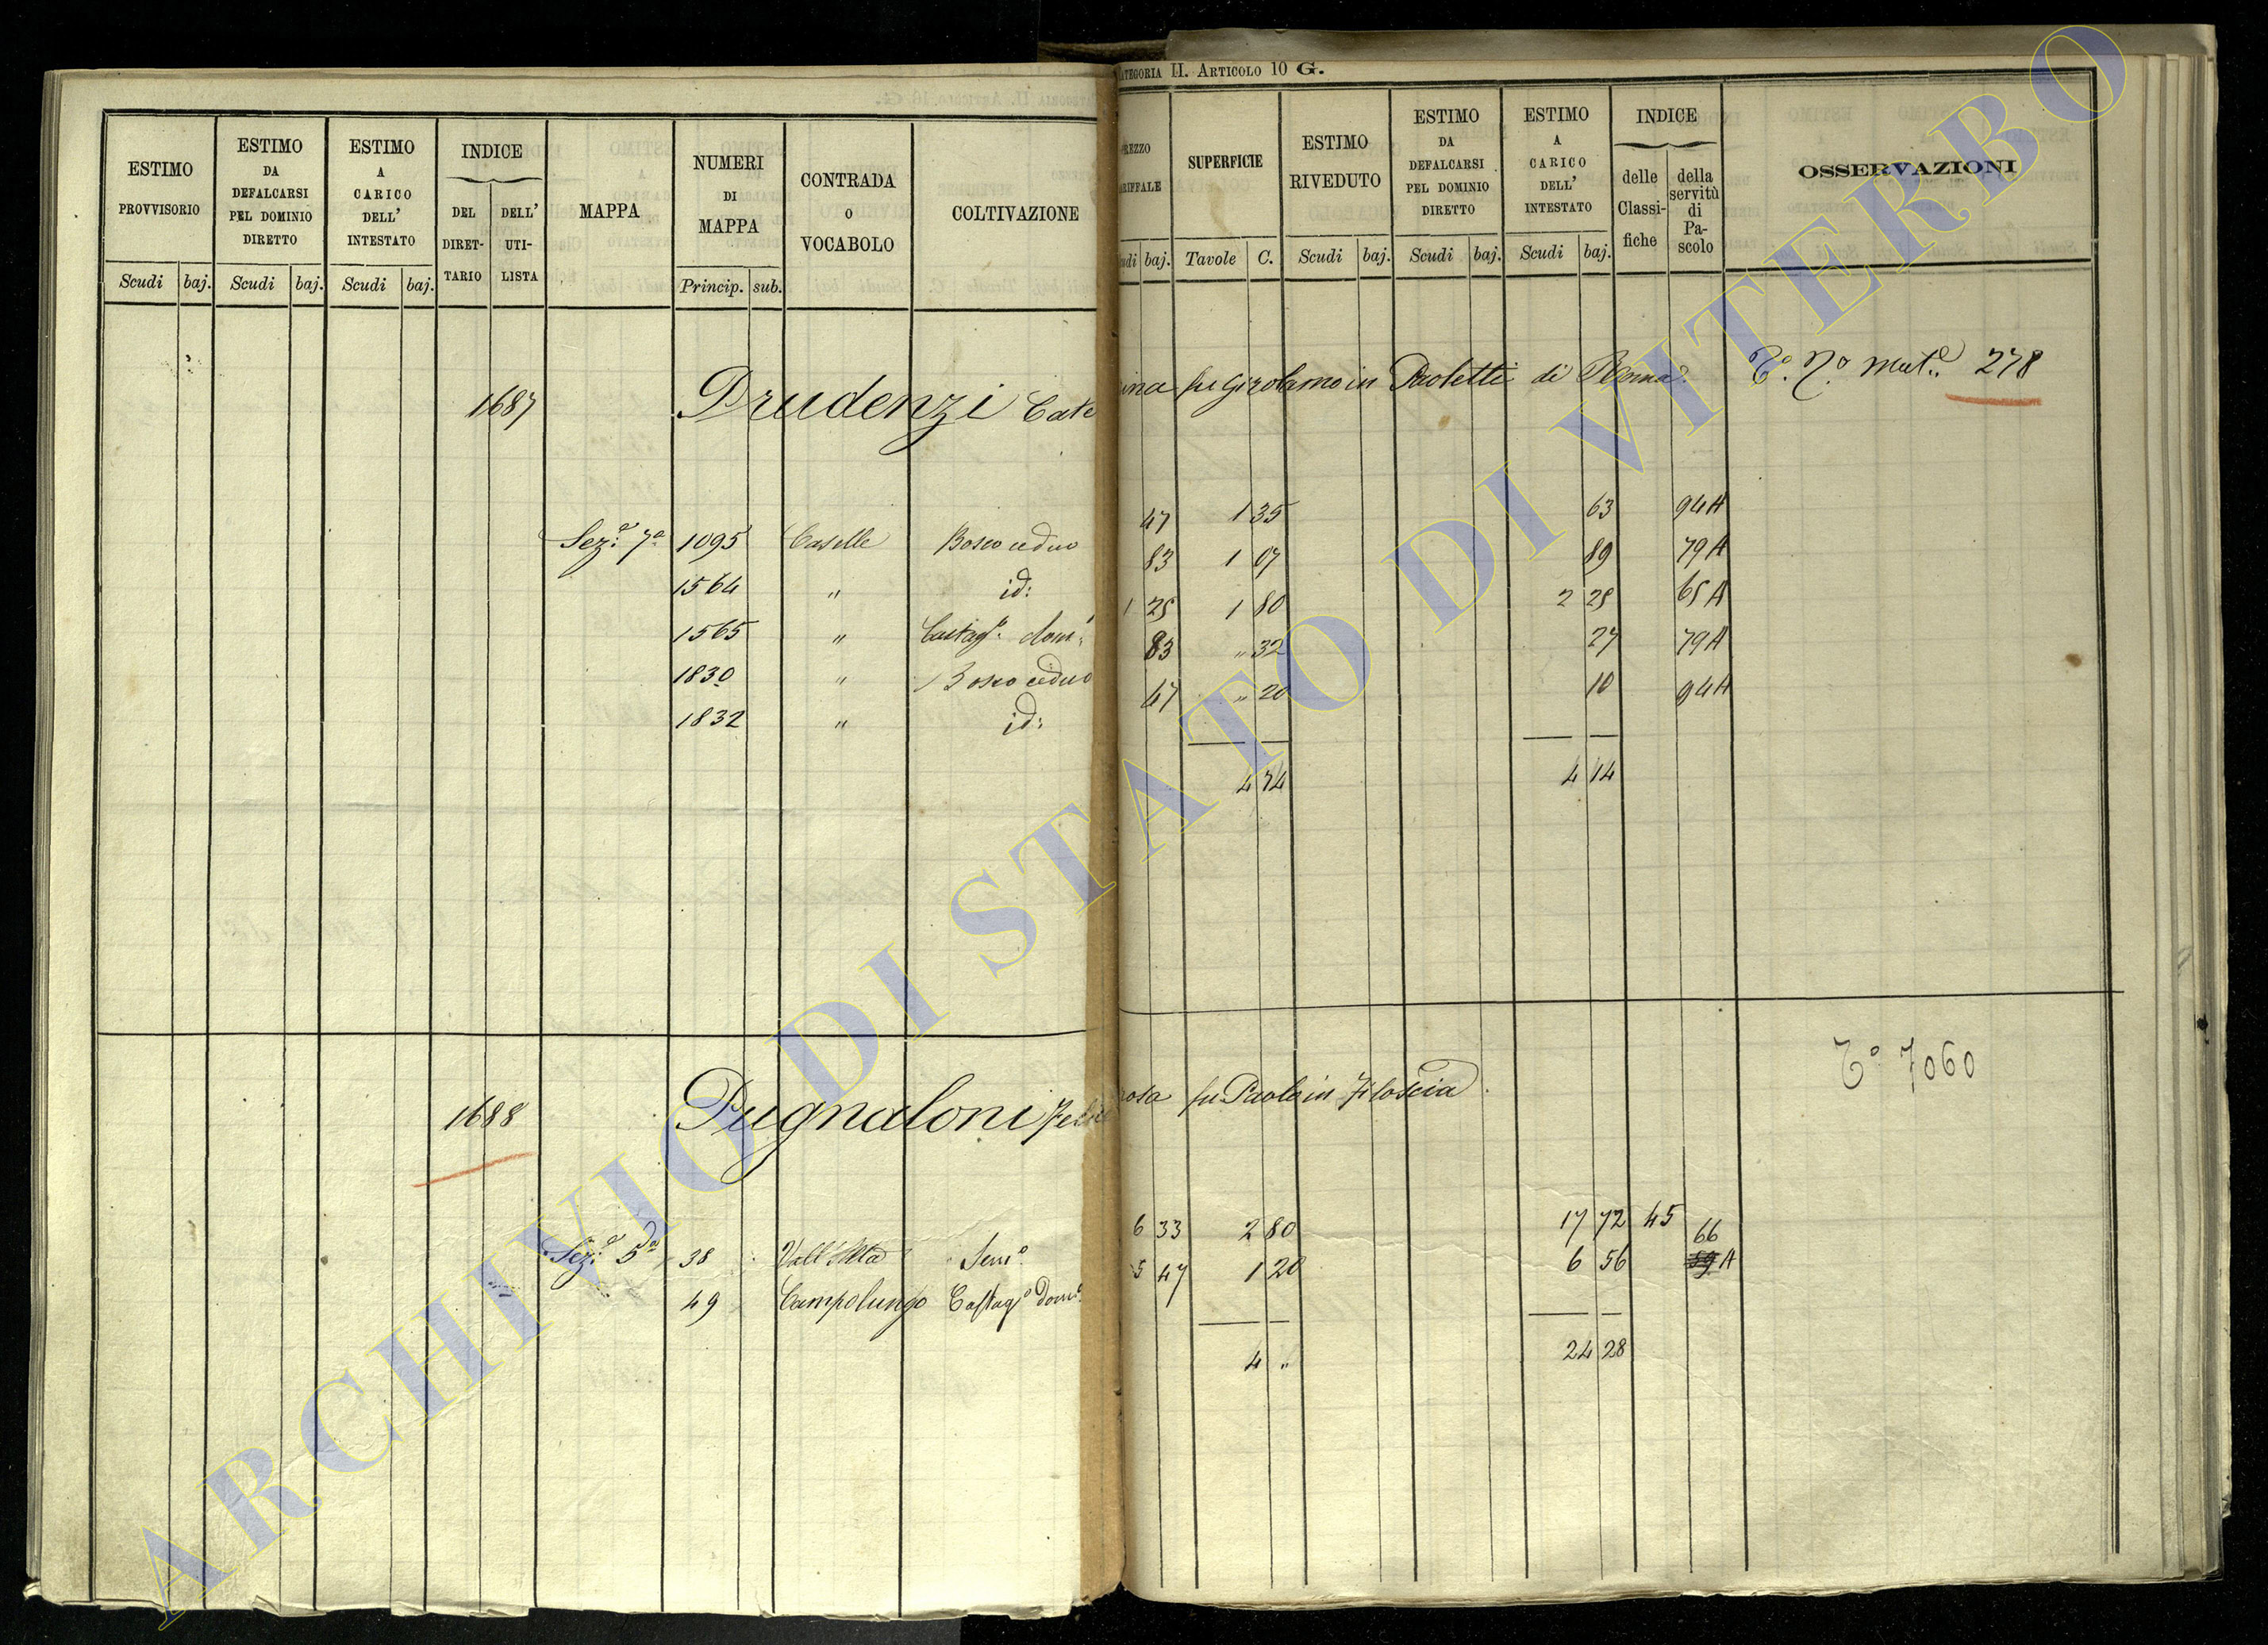 CATEGORIA II. ARTICOLO 10 G.
ESTIMO PROVVISORIO
Scudi baj.
ESTIMO DA DEFALCARSI PEL DOMINIO DIRETTO
Scudi baj.
ESTIMO A CARICO DELL' INTESTATO
Scudi baj.
INDICE
DEL DIRET-TARIO
DELL' UTI-LISTA
MAPPA
NUMERI DI MAPPA
Princip. sub.
CONTRADA O VOCABOLO
COLTIVAZIONE
PREZZO TARIFFALE
Scudi baj.
SUPERFICIE
Tavole C.
ESTIMO RIVEDUTO
Scudi baj.
ESTIMO DA DEFALCARSI PEL DOMINIO DIRETTO
Scudi baj.
ESTIMO A CARICO DELL' INTESTATO
Scudi baj.
INDICE
delle Classi-fiche
della servitù di Pa-scolo
OSSERVAZIONI
1687 Prudenzi Caterina fu Girolamo in Paoletti di Roma. T.o N.o Mut.e 278
Sez.e 7a 1095 Caselle Bosco ceduo 47 1 35 63 94A
1564 " id: 83 1 07 89 79A
1565 " Castag.o dom: 1 25 1 80 2 25 65A
1830 " Bosco ceduo 83 " 32 27 79A
1832 " id: 47 " 20 10 94A
4 74 4 14
T.o 7060
1688 Pugnaloni Felicerosa fu Paolo in Filoscia.
Sez.e 5a 38 Vall'Alta Sem.o 6 33 2 80 17 72 45
49 Campolungo Castag.o dom.o 5 47 1 20 6 56 66 59 A
4 " 24 28
ARCHIVIO DI STATO DI VITERBO